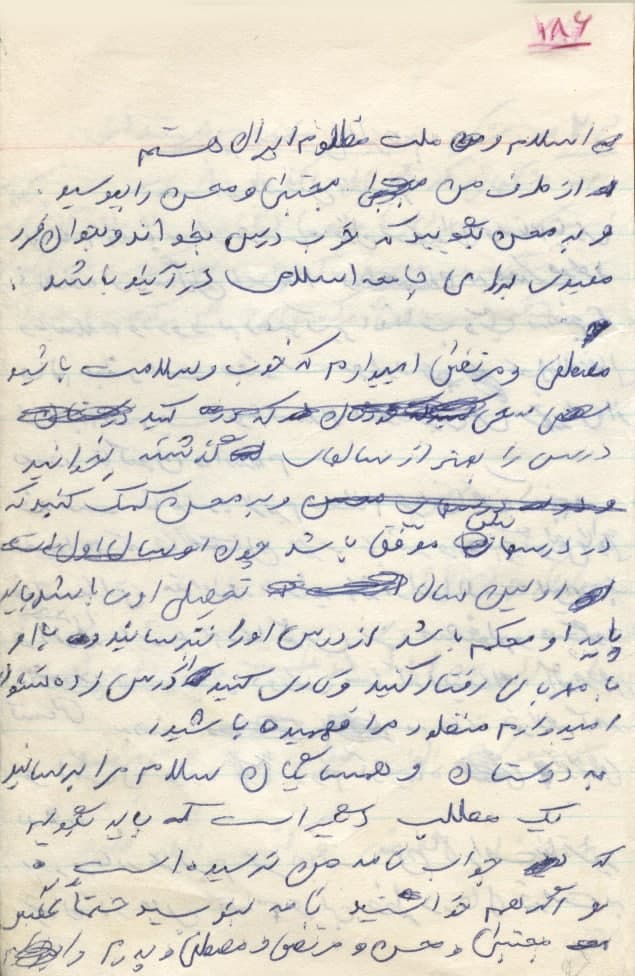 ۲۸۶
اسلام و ملت مظلوم ایران هستم
از طرف من مجتبی و محسن را ببوسید.
و به محسن بگویید که خوب درس بخواند و بتواند فرد
مفیدی برای جامعه اسلامی در آینده باشد.
مصطفی و مرتضی امیدوارم که خوب و سلامت باشید
سعی کنید
درس را بهتر از سالهای گذشته بخوانید
و به محسن کمک کنید که
در درسهایش موفق باشد چون او سال اول است
اولین سال تحصیلی اوست باشد باید
پایه او محکم باشد از درس او را نترسانید با او
با مهربانی رفتار کنید و کاری کنید از درس زده نشود
امیدوارم منظور مرا فهمیده باشید
به دوستان و همسایگان سلام مرا برسانید
یک مطلب دیگر است که باید بگویم
که جواب نامه من نرسیده است.
و اگر هم خواستید نامه بنویسید حتماً
مجتبی و محسن و مرتضی و مصطفی و پدرم